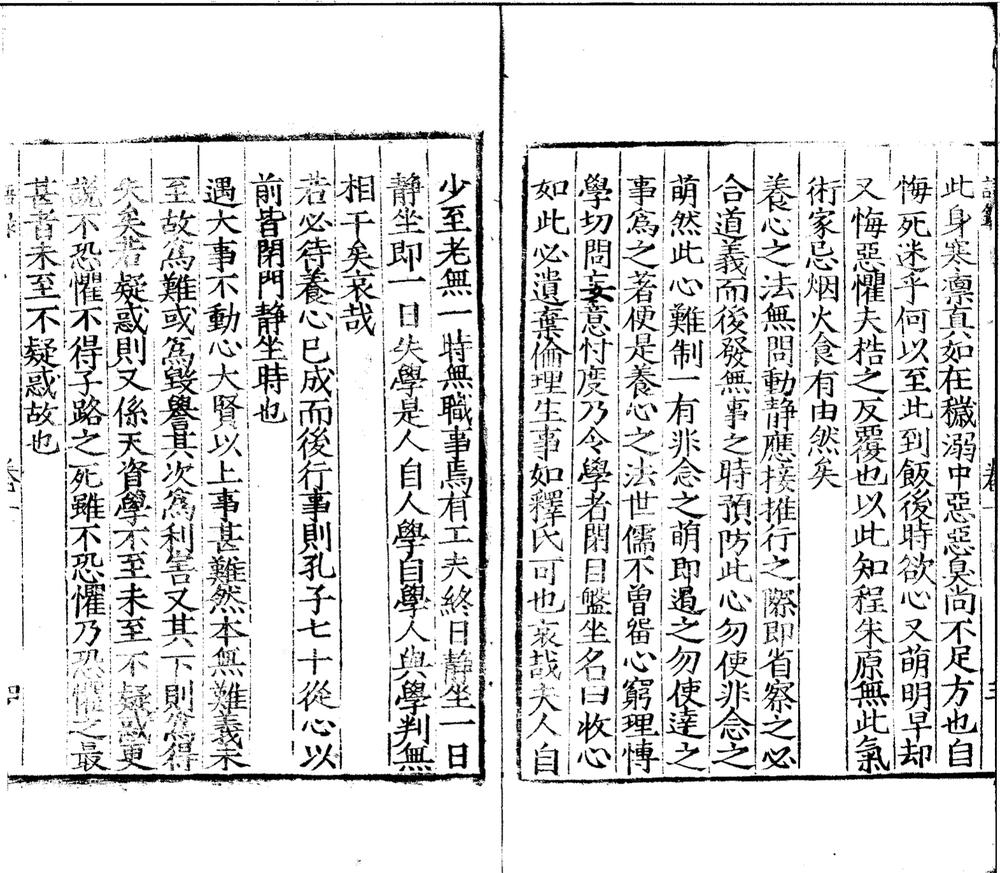 此身寒凛真如在穢溺中惡惡臭尚不足方也自
悔死迷乎何以至此到飯後時欲心又萌明早却
又悔惡懼夫梏之反覆也以此知程朱原無此氣
術家忌烟火食有由然矣
養心之法無問動静應接推行之際即省察之必
合道義而後發無事之時預防此心勿使非念之
萌然此心難制一有非念之萌即遏之勿使達之
事爲之著便是養心之法世儒不曾畱心窮理慱
學切問妄意忖度乃令學者閉目盤坐名曰收心
如此必遺棄倫理生事如釋氏可也哀哉夫人自
少至老無一時無職事焉有工夫終日静坐一日
静坐即一日失學是人自人學自學人與學判無
相干矣哀哉
若必待養心已成而後行事則孔子七十從心以
前皆閉門静坐時也
遇大事不動心大賢以上事甚難然本無難義未
至故爲難或爲毀譽其次爲利害又其下則爲得
失矣若疑惑則又係天資學不至未至不疑惑更
說不恐懼不得子路之死雖不恐懼乃恐懼之最
甚者未至不疑惑故也